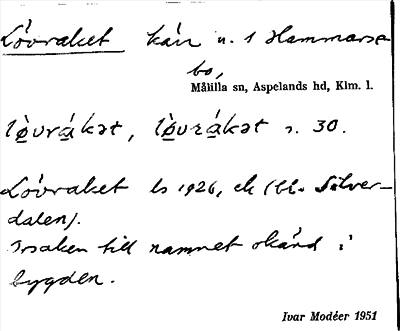 Lövraket kärr n. 1 Hammarse-
bo,
Målilla sn, Aspelands hd, Klm. l.
lø̀vrákət, lø̀vrákət s. 30.
Lövraket ls 1926, ek (bl. Silver-
dalen).
Orsaken till namnet okänd i
bygden.
Ivar Modéer 1951